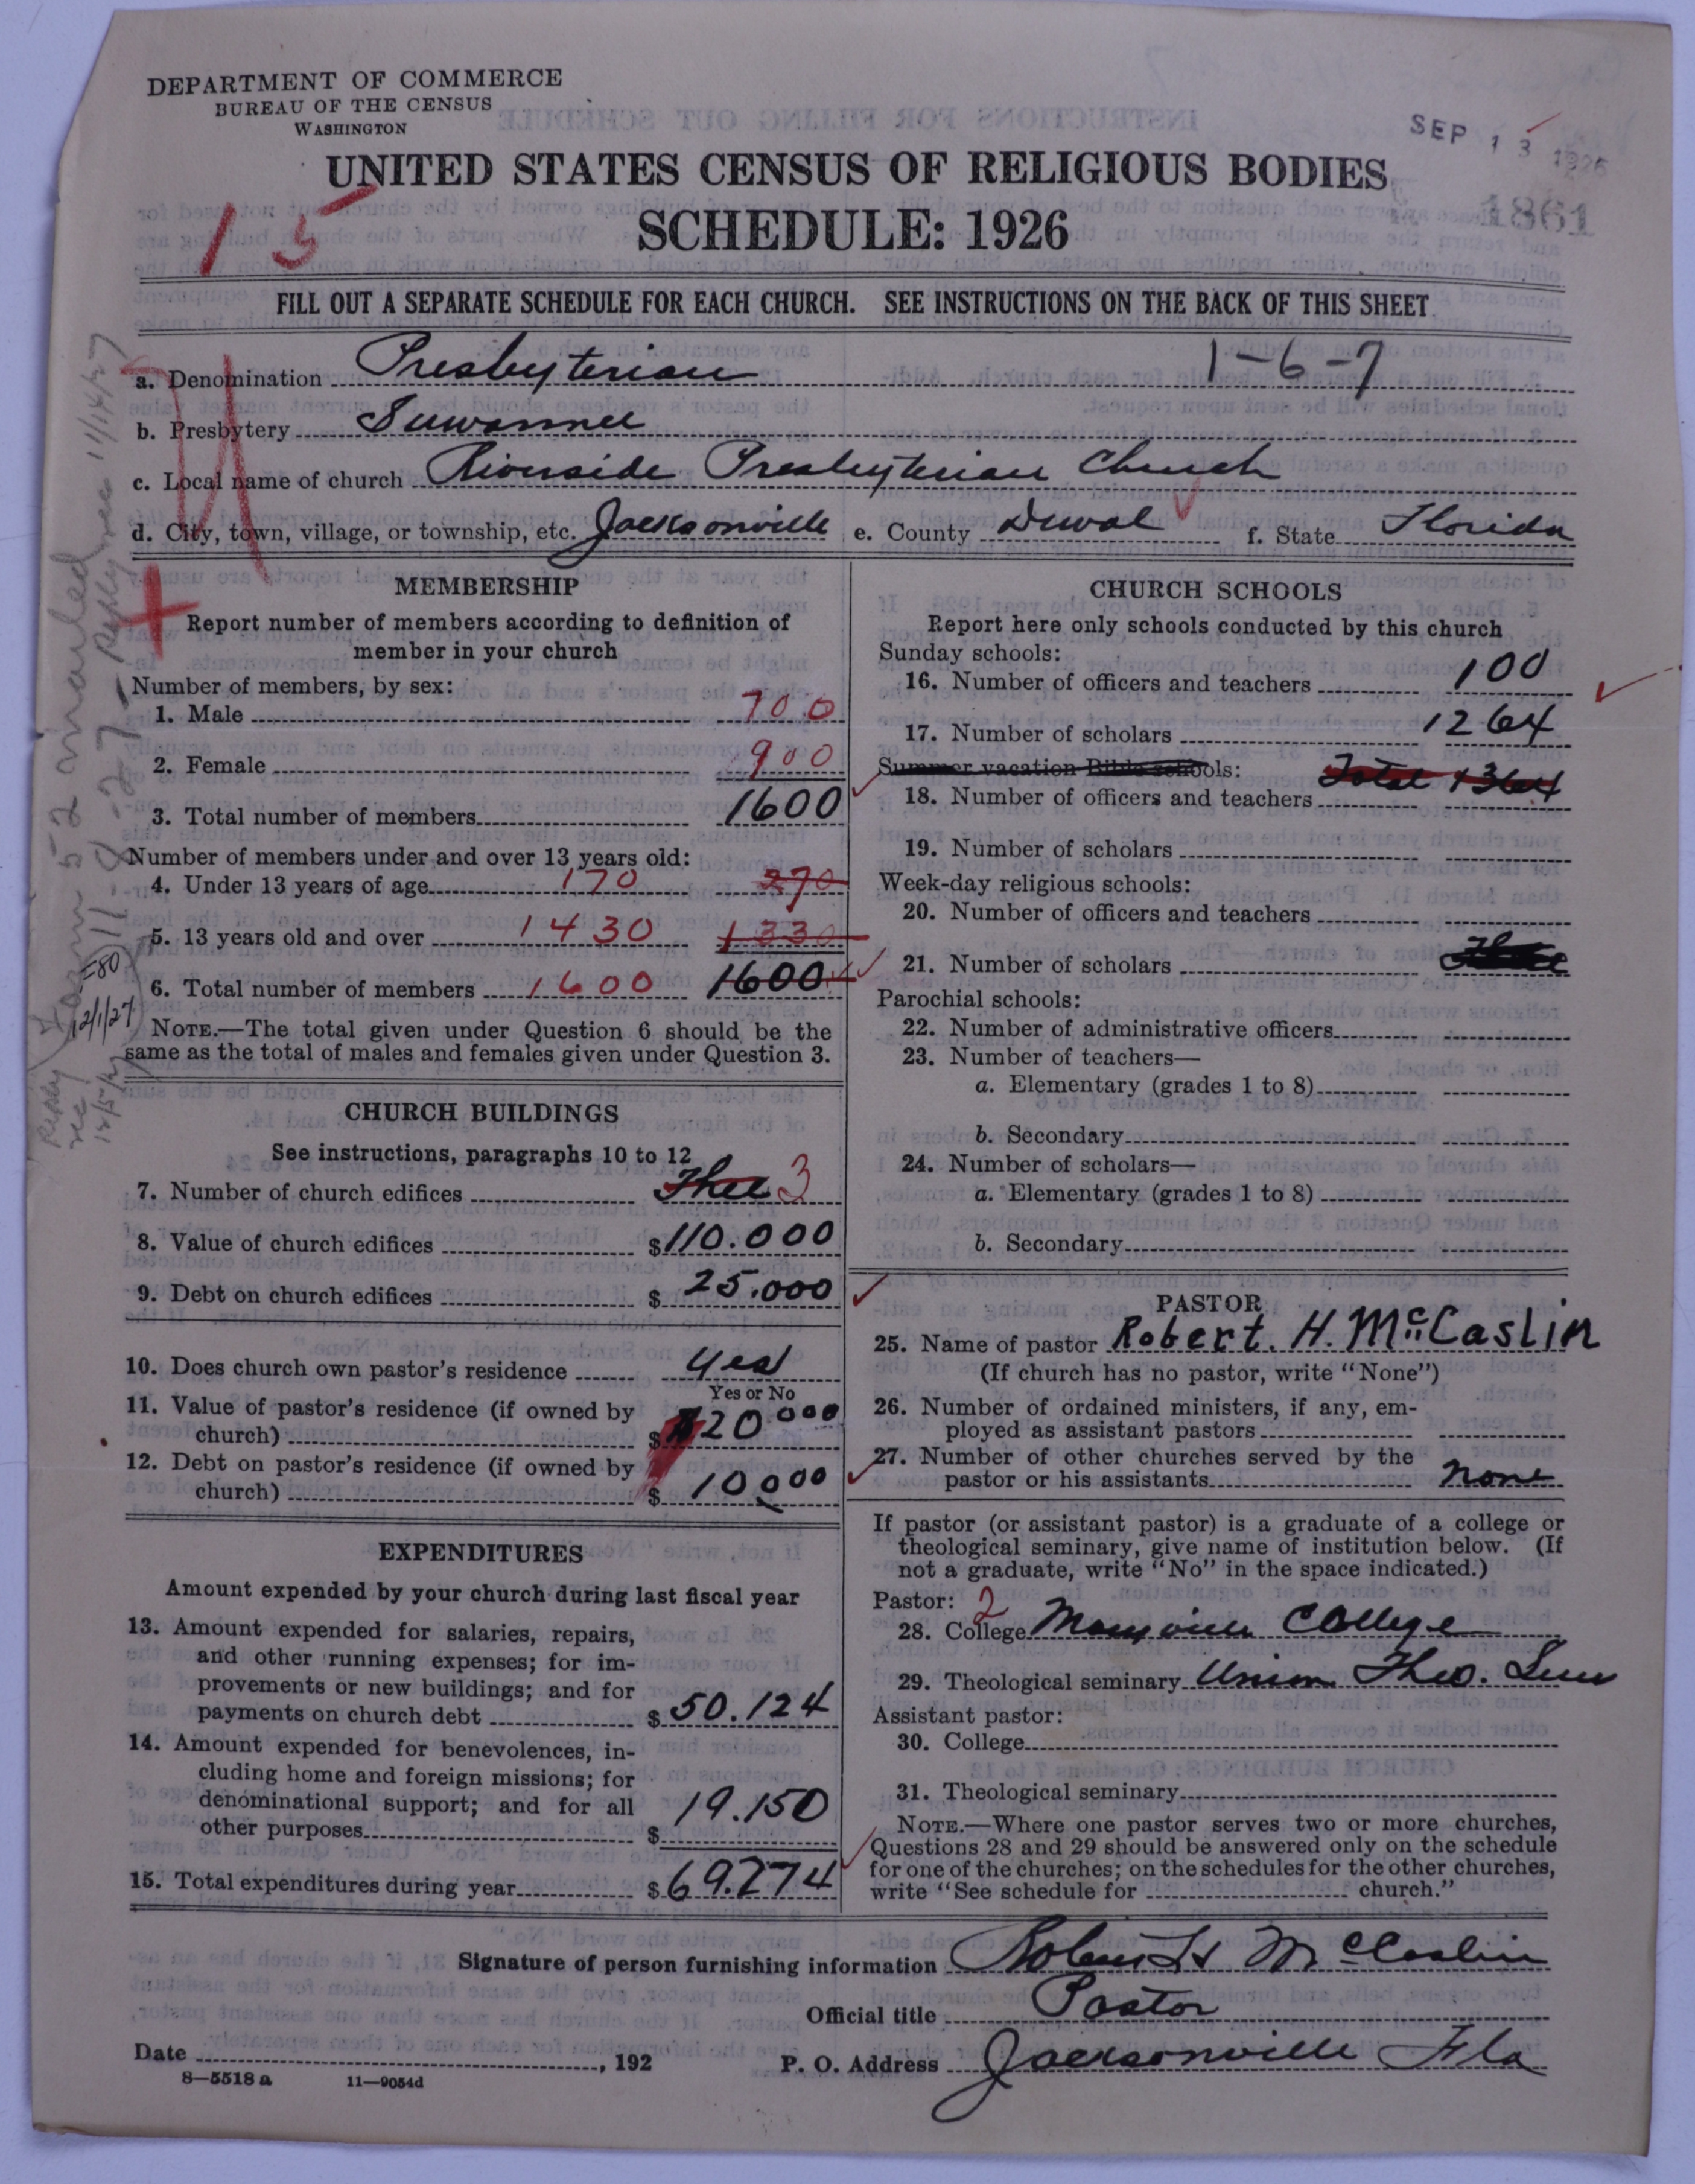 DEPARTMENT OF COMMERCE
BUREAU OF THE CENSUS
WASHINGTON
SEP 13 1926
1861
UNITED STATES CENSUS OF RELIGIOUS BODIES
SCHEDULE: 1926
15
FILL OUT A SEPARATE SCHEDULE FOR EACH CHURCH. SEE INSTRUCTIONS ON THE BACK OF THIS SHEET
a. Denomination Presbyterian 1-6-7
b. Presbytery Suwannee
c. Local name of church Riverside Presbyterian Church
d. City, town, village, or township, etc. Jacksonville e. County Duval f. State Florida
MEMBERSHIP
Report number of members according to definition of
member in your church
Number of members, by sex:
1. Male 700
2. Female 900
3. Total number of members 1600
Number of members under and over 13 years old:
4. Under 13 years of age 170 270
5. 13 years old and over 1430 1330
6. Total number of members 1600 1600
NOTE.—The total given under Question 6 should be the
same as the total of males and females given under Question 3.
CHURCH BUILDINGS
See instructions, paragraphs 10 to 12
7. Number of church edifices Three 3
8. Value of church edifices $110.000
9. Debt on church edifices $25.000
10. Does church own pastor's residence Yes
Yes or No
11. Value of pastor's residence (if owned by
church) $20000
12. Debt on pastor's residence (if owned by
church) $10000
EXPENDITURES
Amount expended by your church during last fiscal year
13. Amount expended for salaries, repairs,
and other running expenses; for im-
provements or new buildings; and for
payments on church debt $50.124
14. Amount expended for benevolences, in-
cluding home and foreign missions; for
denominational support; and for all
other purposes $19.150
15. Total expenditures during year $69.274
CHURCH SCHOOLS
Report here only schools conducted by this church
Sunday schools:
16. Number of officers and teachers 100
17. Number of scholars 1264
Summer vacation Bible schools: Total 1364
18. Number of officers and teachers
19. Number of scholars
Week-day religious schools:
20. Number of officers and teachers
21. Number of scholars
Parochial schools:
22. Number of administrative officers
23. Number of teachers—
a. Elementary (grades 1 to 8)
b. Secondary
24. Number of scholars—
a. Elementary (grades 1 to 8)
b. Secondary
PASTOR
25. Name of pastor Robert. H. McCaslin
(If church has no pastor, write "None")
26. Number of ordained ministers, if any, em-
ployed as assistant pastors
27. Number of other churches served by the
pastor or his assistants none
If pastor (or assistant pastor) is a graduate of a college or
theological seminary, give name of institution below. (If
not a graduate, write "No" in the space indicated.)
Pastor: 2
28. College Maryville College
29. Theological seminary Union Theo. Sem
Assistant pastor:
30. College
31. Theological seminary
NOTE.—Where one pastor serves two or more churches,
Questions 28 and 29 should be answered only on the schedule
for one of the churches; on the schedules for the other churches,
write "See schedule for church."
Signature of person furnishing information Robert H McCaslin
Official title Pastor
Date , 192
P. O. Address Jacksonville Fla
8—5518 a 11—9054d
Form 52 mailed 11-9-27 Reply rec 11/14/27
-80
12/1/27
Reply rec